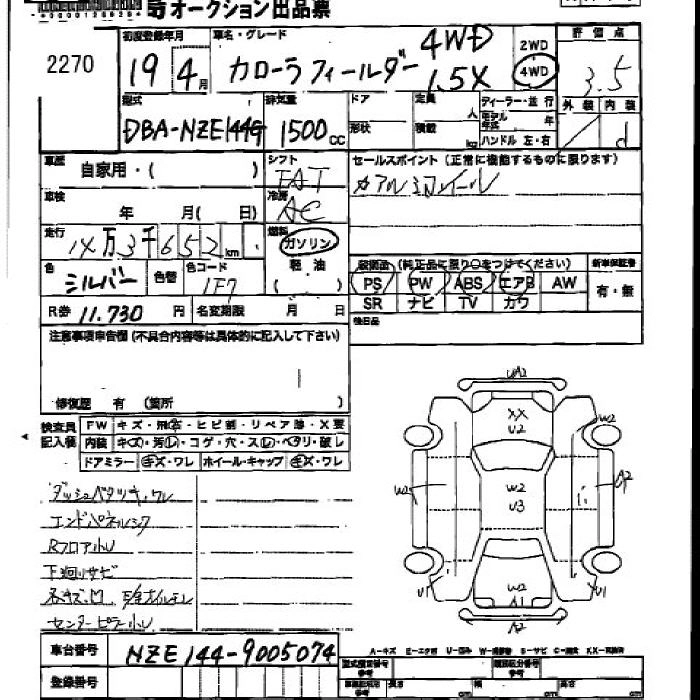 オークション出品票
2270
初度登録年月 車名・グレード
19 4月 カローラフィールダー 4WD 1.5X
2WD
4WD
評価点
3.5
外装 内装
d
型式 排気量 ドア 定員 ディーラー・並行
DBA-NZE144G 1500cc 形状 積載 人 kg モデル年式 年
ハンドル 左・右
車歴 自家用・( )
シフト FAT
セールスポイント(正常に機能するものに限ります)
車検 年 月( 日)
冷房 AC
走行 1X万3千652km
燃料 ガソリン
軽油
( )
色 シルバー 色替 色コード 1F7
装備品(純正品に限り○をつけてください) 新車保証書
PS PW ABS エアB AW 有・無
SR ナビ TV カワ
R券 11.730 円 名変期限 月 日
後日品
注意事項申告欄(不具合内容等は具体的に記入して下さい)
修復歴 有 (箇所 )
検査員記入欄
FW キズ・飛石・ヒビ割・リペア跡・X要
内装 キズ・汚レ・コゲ・穴・スレ・ベタリ・破レ
ドアミラー キズ・ワレ ホイール・キャップ キズ・ワレ
ダッシュベタツキ,ワレ
Rフロア小U
下廻リサビ
センターピラー小U
XX
U2
W2
W2
W2
U3
A2
W2
A1
U1
U1
A2
車台番号 NZE144-9005074
登録番号
A-キズ E-エクボ U-凹み W-補修跡 S-サビ C-腐食
型式指定番号 類別区分番号
長さ cm 幅 cm 高さ cm